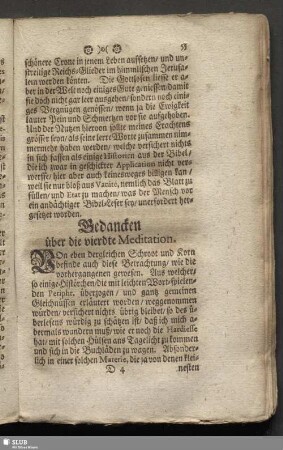 53
schönere Crone in jenem Leben auffsetzen/ und un-
streitige Reichs-Glieder im himmlischen Jerusa-
lem werden könten. Die Gottlosen liesse er a-
ber in der Welt noch einiges Gute geniessen/damit
sie doch nicht gar leer ausgehen/sondern noch eini-
ges Vergnügen genossen/ wenn ja die Ewigkeit
lauter Pein und Schmertzen vor sie auffgehoben.
Und der Nutzen hiervon solte meines Erachtens
grösser seyn/als seine leere Worte zusammen nim-
mermehr haben werden/ welche versichert nichts
in sich fassen als einige Historien aus der Bibel/
die ich zwar in geschickter Application nicht ver-
werffe; hier aber auch keinesweges billigen kan/
weil sie nur bloß aus Vanité, nemlich das Blatt zu
füllen/ und Etat zu machen/ was der Mensch vor
ein andächtiger Bibel-Leser sey/ unerfordert her-
gesetzet worden.
Gedancken
über die vierdte Meditation.
VOn eben dergleichen Schroot und Korn
befinde auch diese Betrachtung/ wie die
vorhergangenen gewesen. Aus welcher/
so einige Histörchen/die mit leichten Wort-spielen-
den Periphr. überzogen/ und gantz gemeinen
Gleichnüssen erläutert worden/ weggenommen
würden/ versichert nichts übrig bleibet/ so des ü-
berlesens würdig zu schätzen ist/ daß ich mich a-
bermals wundern muß/ wie er noch die Hardiesse
hat/ mit solchen Hülsen ans Tagelicht zu kommen
und sich in die Buchläden zu wagen. Absonder-
lich in einer solchen Materie, die ja von denen klei-
D 4
nesten
SLUB